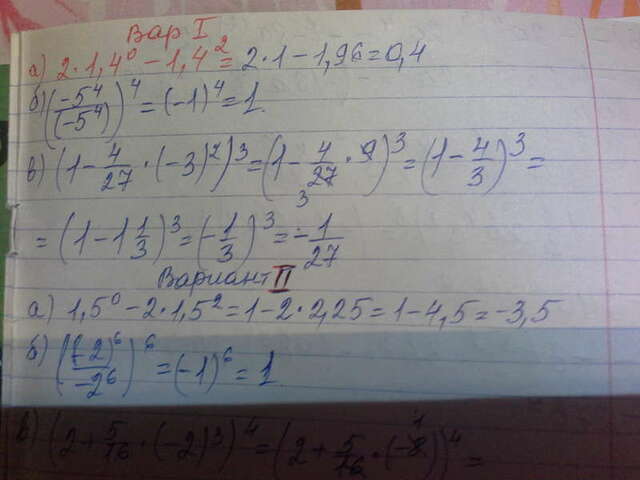 Вар I
а) 2·1,4⁰ − 1,4² = 2·1 − 1,96 = 0,4
б) (−5⁴/(−5⁴))⁴ = (−1)⁴ = 1
в) (1 − 4/27 · (−3)²)³ = (1 − 4/27 · 9)³ = (1 − 4/3)³ =
3
= (1 − 1 1/3)³ = (−1/3)³ = −1/27
Вариант II
а) 1,5⁰ − 2·1,5² = 1 − 2·2,25 = 1 − 4,5 = −3,5
б) ((−2)⁶/−2⁶)⁶ = (−1)⁶ = 1
в) (2 + 5/16 · (−2)³)⁴ = (2 + 5/16 · (−8))⁴ =